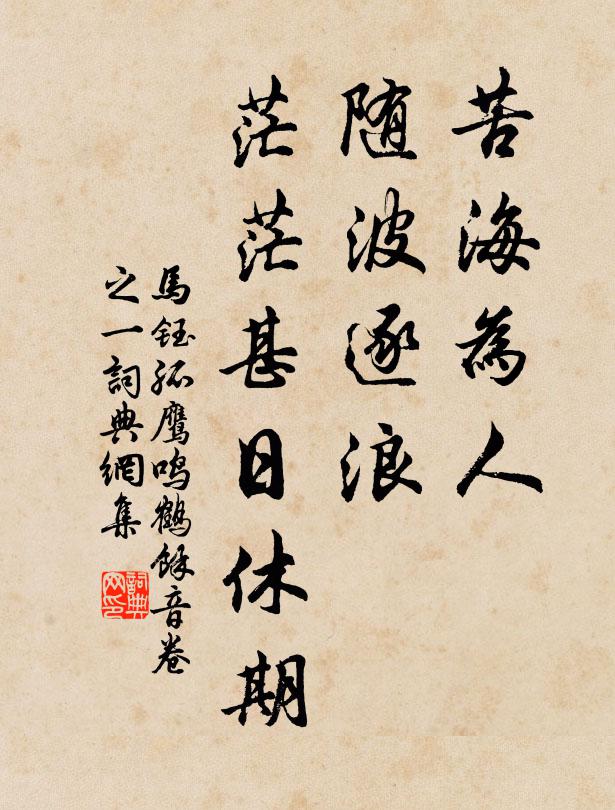 苦海為人
随波逐浪
茫茫甚日休期
馬鈺孤鹰鸣鶴餘音卷
之一詞典網集
詞典网印